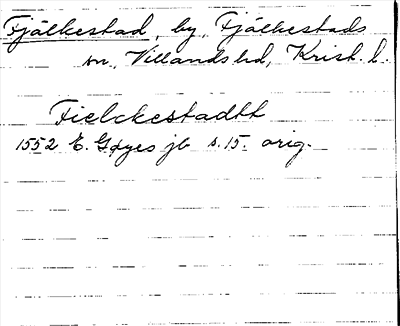 Fjälkestad, by, Fjälkestads
sn, Villands hd, Krist. l.
Fielckestadtt
1552 E. Gøyes jb s. 15. orig.